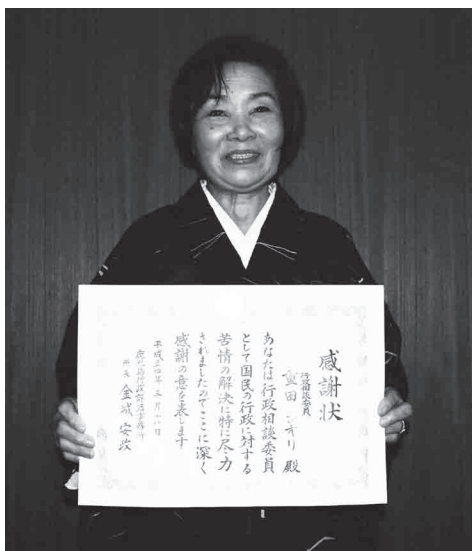 感謝状
行政相談委員
重田 殿
あなたは行政相談委員
として国民の行政に対する
苦情の解決に特に尽力
されましたのでここに深く
感謝の意を表します
平成二 年 月 八日
鹿児島行政評価事務所
所長 金城 安政